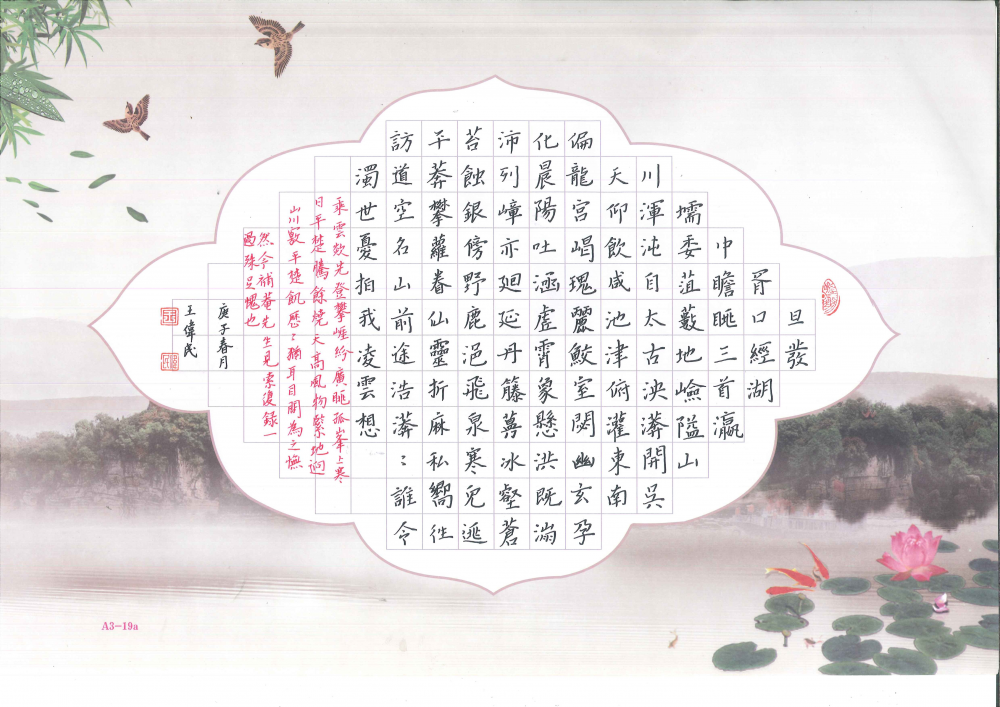 旦發
胥口經湖
中瞻眺三首瀛
壖委菹藪地嶮隘山
川渾沌自太古泱漭開吳
天仰飲咸池津俯灌東南
偏龍宮嵑瑰麗鮫室閟幽玄孕
化晨陽吐涵虛霄象懸洪既滿
沛列嶂亦迴延丹籐蔓冰壑蒼
苔蝕銀傍野鹿浥飛泉寒兒遞
干莽攀蘿眷仙靈折麻私嚮往
訪道空名山前途浩漭：誰令
濁世憂拍我凌雲想
乘雲欻先登攀崕紛廣眺孤峯上寒
日平楚騰餘燒天高風物緊地迥
山川平楚飢歷：耳目間為之憮
然今補菴先生見索復録一
過殊足愧也
庚子春月
王偉民
A3-19a